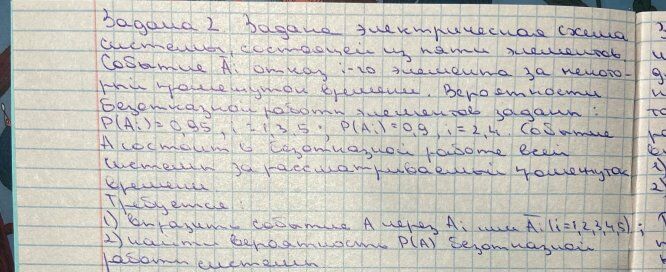 Задача 2. Задана электрическая схема
системы, состоящей из пяти элементов.
Событие A̅i отказ i-го элемента за некото-
рый промежуток времени. Вероятности
безотказной работы элементов заданы:
P(Ai)=0,95, i=1,3,5; P(Ai)=0,9, i=2,4. Событие
A состоит в безотказной работе всей
системы за рассматриваемый промежуток
времени
Требуется:
1) выразить событие A через Ai или A̅i (i=1,2,3,4,5);
2) найти вероятность P(A) безотказной
работы системы